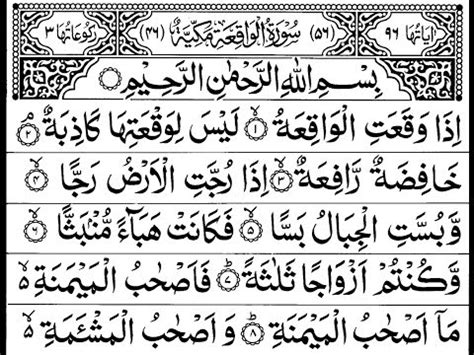 اٰیَاتُهَا ٩٦ (٥٦) سُوْرَةُ الْوَاقِعَةِ مَكِّيَّةٌ (٤٦) رُكُوْعَاتُهَا ٣
بِسْمِ اللّٰهِ الرَّحْمٰنِ الرَّحِيْمِ ۝
اِذَا وَقَعَتِ الْوَاقِعَةُ ۝١ لَيْسَ لِوَقْعَتِهَا كَاذِبَةٌ ۝٢
خَافِضَةٌ رَّافِعَةٌ ۝٣ اِذَا رُجَّتِ الْاَرْضُ رَجًّا ۝٤
وَّبُسَّتِ الْجِبَالُ بَسًّا ۝٥ فَكَانَتْ هَبَآءً مُّنْۢبَثًّا ۝٦
وَّكُنْتُمْ اَزْوَاجًا ثَلٰثَةً ۝٧ فَاَصْحٰبُ الْمَيْمَنَةِ ۵
مَاۤ اَصْحٰبُ الْمَيْمَنَةِ ۝٨ وَاَصْحٰبُ الْمَشْـَٔمَةِ ۵